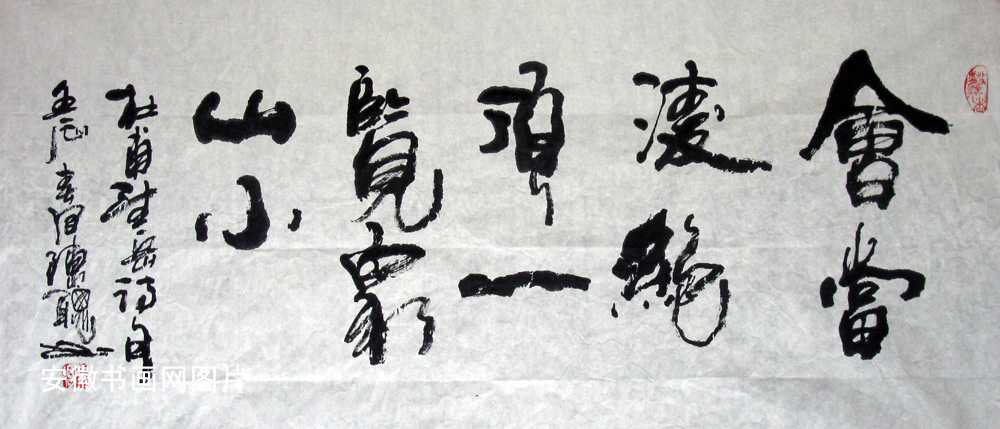 會當
凌絕
頂一
覽眾
山小
杜甫望岳詩句
安徽书画网图片